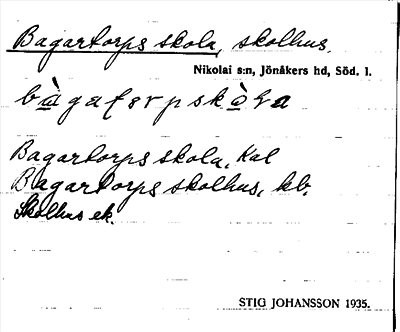 Bagartorps skola, skolhus.
Nikolai s:n, Jönåkers hd, Söd. l.
Bagartorps skola, Kal
Bagartorps skolhus, kb.
Skolhus ek.
STIG JOHANSSON 1935.